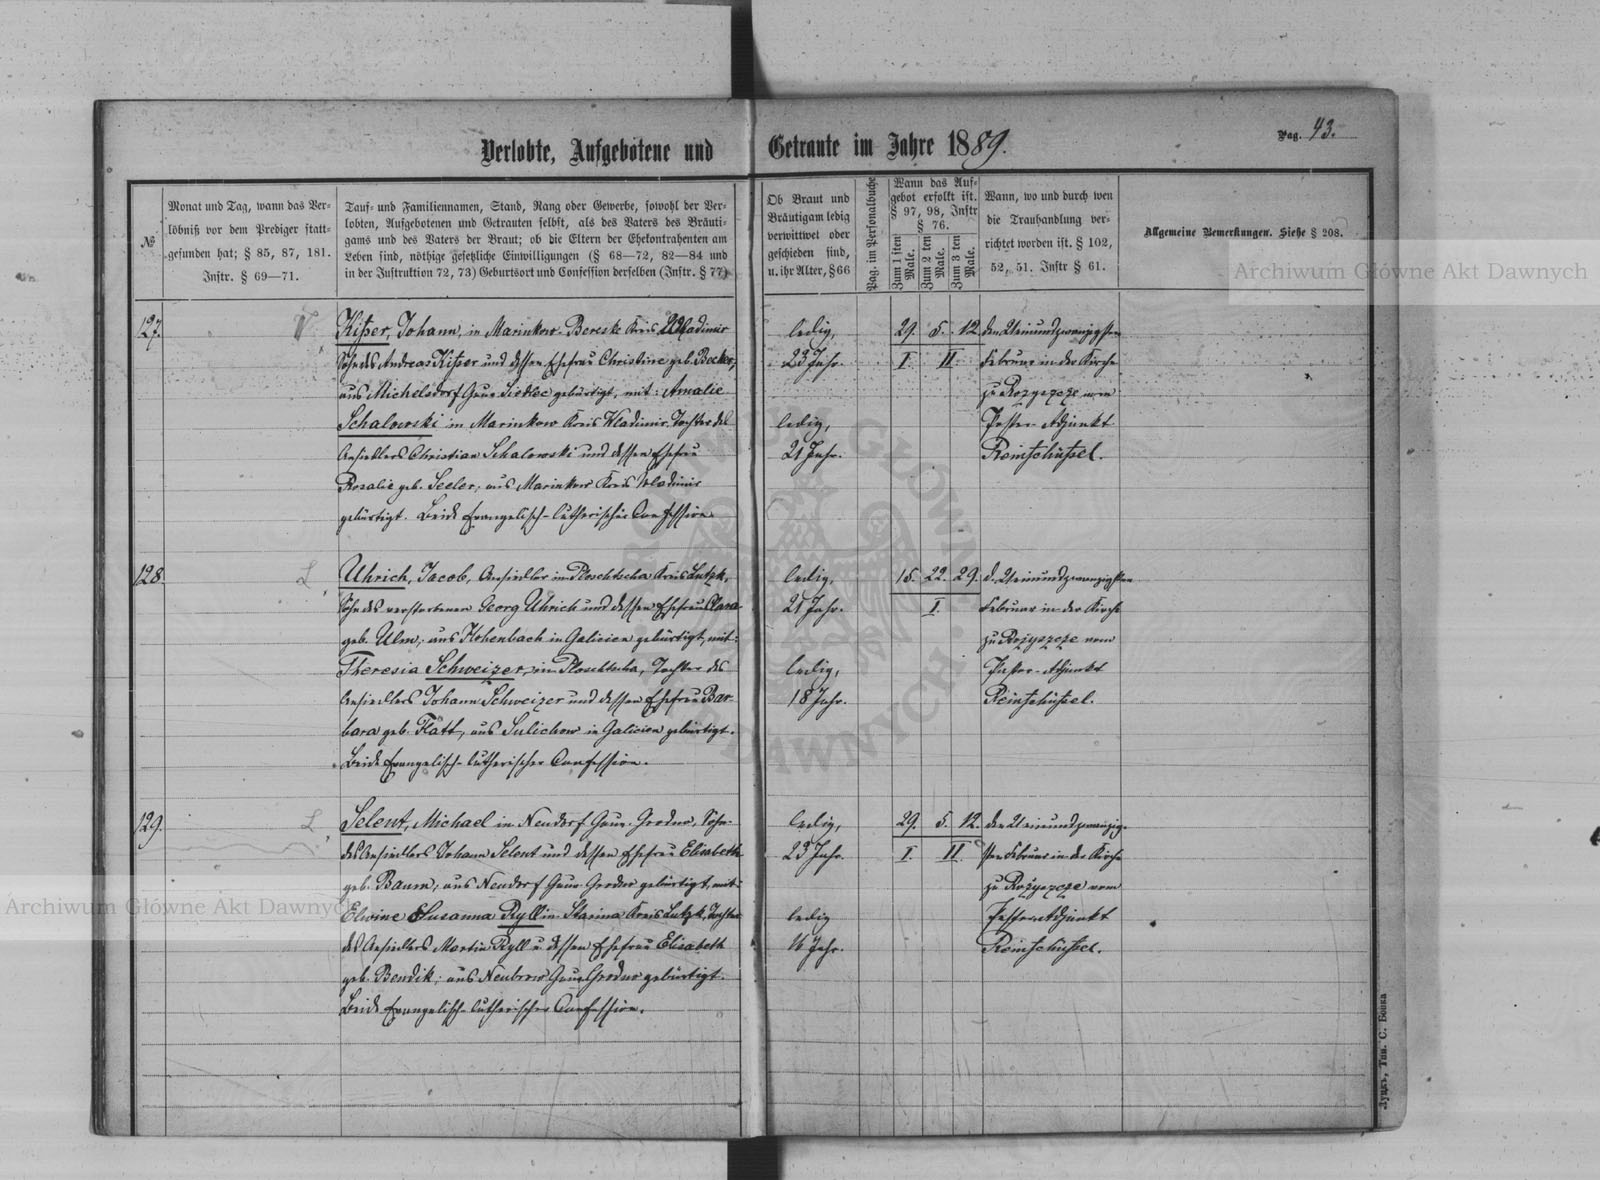 Verlobte, Aufgebotene und Getraute im Jahre 1889.
Pag. 43.
№
Monat und Tag, wann das Ver-
löbniß vor dem Prediger statt-
gefunden hat; § 85, 87, 181.
Instr. § 69—71.
Tauf- und Familiennamen, Stand, Rang oder Gewerbe, sowohl der Ver-
lobten, Aufgebotenen und Getrauten selbst, als des Vaters des Bräuti-
gams und des Vaters der Braut; ob die Eltern der Ehekontrahenten am
Leben sind, nöthige gesetzliche Einwilligungen (§ 68—72, 82—84 und
in der Instruktion 72, 73) Geburtsort und Confession derselben (Instr. § 77)
Ob Braut und
Bräutigam ledig
verwittwet oder
geschieden sind,
u. ihr Alter, § 66
Pag. im Personalbuche
Wann das Auf-
gebot erfolkt ist.
§ 97, 98, Instr
§ 76.
Zum 1 sten Male.
Zum 2 ten Male.
Zum 3 ten Male.
Wann, wo und durch wen
die Trauhandlung ver-
richtet worden ist. § 102,
52, 51. Instr § 61.
Allgemeine Bemerkungen. Siehe § 208.
127.
Kißer, Johann, in Marinkow-Bereske Kreis Wladimir
Sohn des Andreas Kißer und dessen Ehefrau Christine geb. Becker,
aus Michelsdorf Gouv. Siedlec gebürtigt, mit: Amalie
Schalowski in Marinkow Kreis Wladimir, Tochter des
Ansiedlers Christian Schalowski und dessen Ehefrau
Rosalie geb. Seeler, aus Marinkow Kreis Wladimir
gebürtigt. Beide Evangelisch-lutherischer Confession.
ledig,
23 Jahr.
ledig,
21 Jahr.
29. 5. 12.
I. II.
den Einundzwanzigsten
Februar in der Kirche
zu Rożyszcze vom
Pastor-Adjunkt
Reinschüssel.
128.
L
Uhrich, Jacob, Ansiedler in Ploschtscha Kreis Lutzk,
Sohn des verstorbenen Georg Uhrich und dessen Ehefrau Clara
geb. Ulm, aus Hohenbach in Galicien gebürtigt, mit:
Theresia Schweizer, in Ploschtscha, Tochter des
Ansiedlers Johann Schweizer und dessen Ehefrau Bar-
bara geb. Flatt, aus Sulichow in Galicien gebürtigt.
Beide Evangelisch-lutherischer Confession.
ledig,
21 Jahr.
ledig,
18 Jahr.
15. 22. 29.
I.
d. Einundzwanzigsten
Februar in der Kirche
zu Rożyszcze vom
Pastor-Adjunkt
Reinschüssel.
129.
L
Selent, Michael in Neudorf Gouv. Grodno, Sohn
des Ansiedlers Johann Selent und dessen Ehefrau Elisabeth
geb. Baum, aus Neudorf Gouv. Grodno gebürtigt, mit:
Elwine Susanna Ryll in Starina Kreis Lutzk, Tochter
des Ansiedlers Martin Ryll u. dessen Ehefrau Elisabeth
geb. Bendik, aus Neubrow Gouv. Grodno gebürtigt.
Beide Evangelisch-lutherischer Confession.
ledig,
23 Jahr.
ledig
16 Jahr.
29. 5. 12.
I. II.
den Einundzwanzig-
sten Februar in der Kirche
zu Rożyszcze vom
Pastor-Adjunkt
Reinschüssel.
Луцкъ, Тип. С. Бонка
Archiwum Główne Akt Dawnych
Archiwum Główne Akt Dawnych